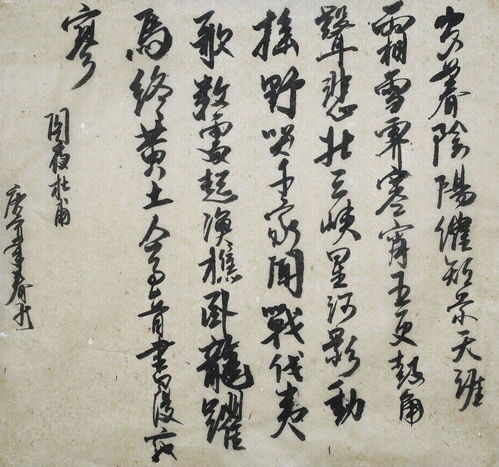 歲暮陰陽催短景天涯
霜雪霽寒宵五更鼓角
聲悲壯三峽星河影動
搖野哭千家聞戰伐夷
歌數處起漁樵臥龍躍
馬終黃土人事音書漫寂
寥
閣夜杜甫
庚寅春